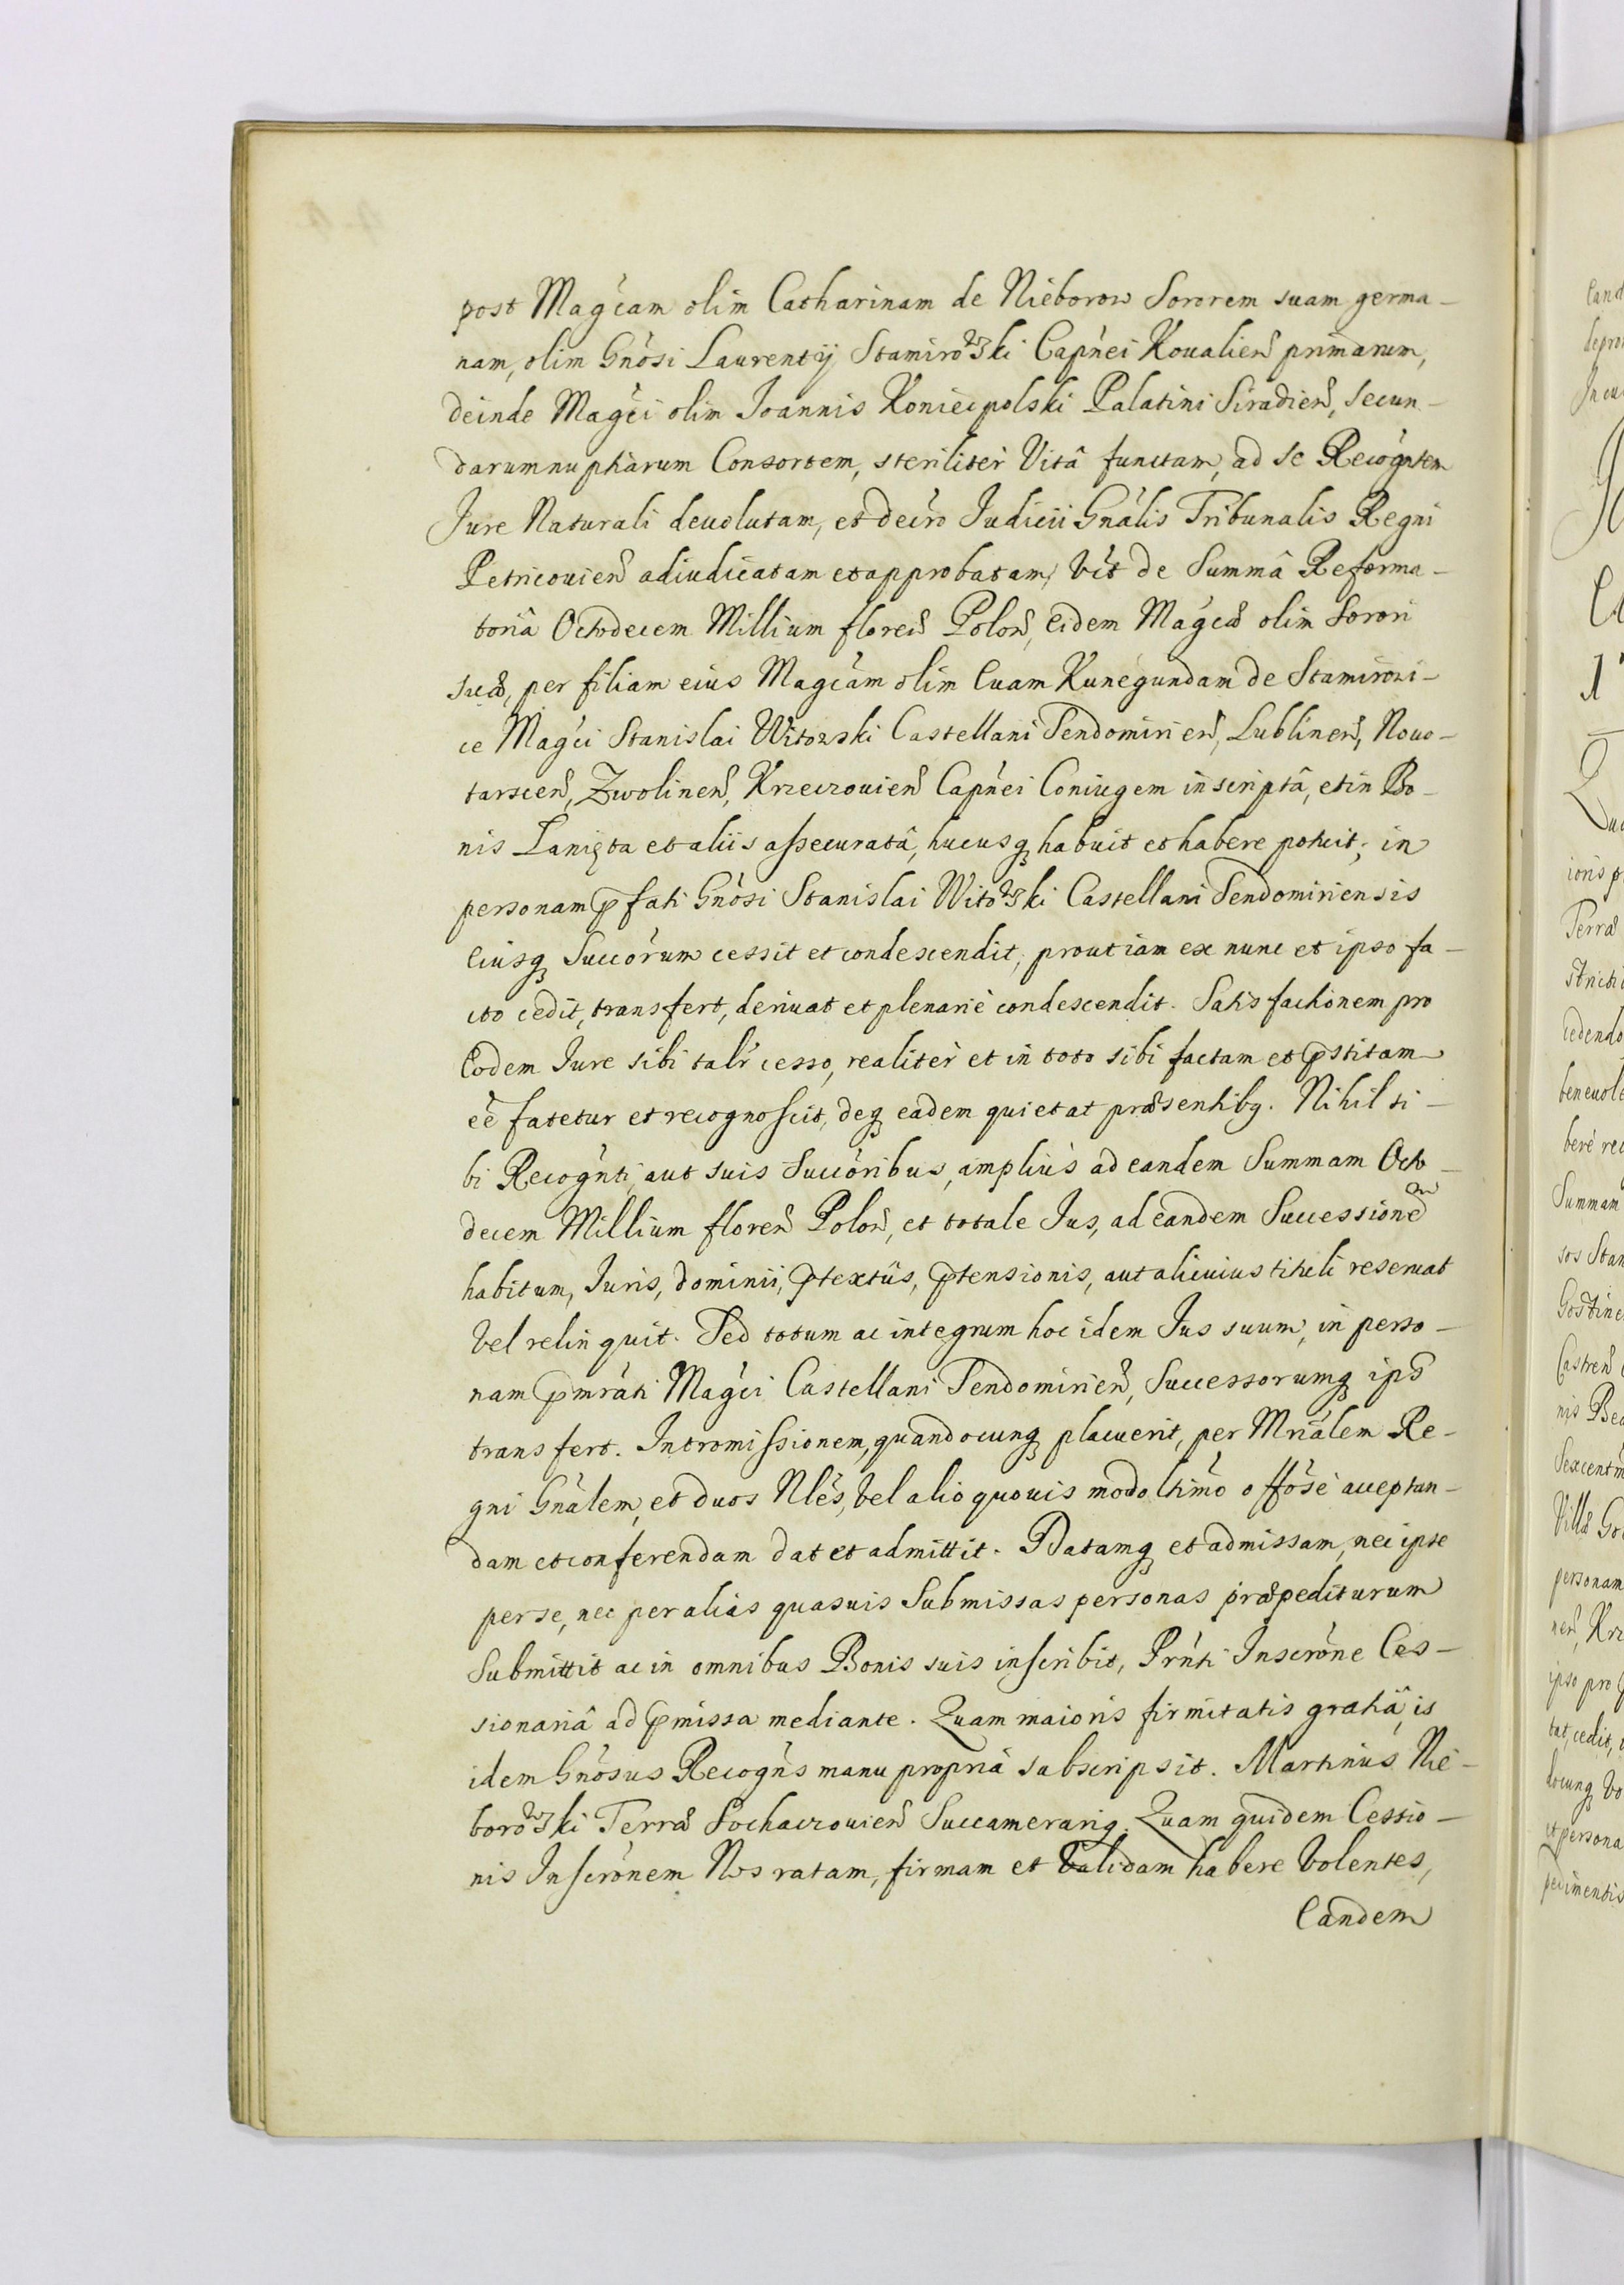 post Magćam olim Catharinam de Nieborow Sororem suam germa-
nam, olim Gnosi Laurentÿ Stamirowski Capnei Koualien primarum,
deinde Magci olim Joannis Koniecpolski Palatini Siradien, secun-
darum nuptiarum Consortem, steriliter Vitâ functam, ad se Recogntem
Jure Naturali deuolutam, et decro Judicii Gnalis Tribunalis Regni
Petricouien adiudicatam et approbatam, Vti de Summâ Reforma-
toriâ Octodecem Millium floren Polon, eidem Magcæ olim Sorori
suæ, per filiam eius Magcam olim Euam Kunegundam de Stamirowi-
ce Magci Stanislai Witowski Castellani Sendomirien, Lublinen, Nouo-
tarscen, Zwolinen, Krzeczouien Capnei Coniugem inscriptâ, et in Bo-
nis Łanięta et aliis assecuratâ, hucusq habuit et habere potuit; in
personam p̄fati Gnosi Stanislai Witowski Castellani Sendomiriensis
eiusq Succorum cessit et condescendit, prout iam ex nunc et ipso fa-
cto cedit, transfert, deriuat et plenariè condescendit. Satisfactionem pro
eodem Jure sibi talr cesso, realiter et in toto sibi factam et p̄stitam
ēe fatetur et recognoscit, deq eadem quietat præsentibq. Nihil si-
bi Recognti, aut suis Succoribus, amplius ad eandem Summam Octo-
decem Millium floren Polon, et totale Jus, ad eandem Successionem
habitum, Juris, dominii, p̄textûs, p̄tensionis, aut alicuius tituli reseruat
Vel relinquit. Sed totum ac integrum hoc idem Jus suum, in perso-
nam p̄mrati Magci Castellani Sendomirien, Successorumq ips
transfert. Intromissionem, quandocunq placuerit, per Mrialem Re-
gni Gnalem, et duos Nles, Vel alio quouis modo ltimo offose acceptan-
dam et conferendam dat et admittit. Datamq et admissam, nec ipse
per se, nec per alias quasuis Submissas personas præpediturum
Submittit ac in omnibus Bonis suis inscribit, Prnti Inscrone Ces-
sionariâ ad p̄missa mediante. Quam maioris firmitatis gratiâ, is
idem Gnosus Recogns manu propriâ subscripsit. Martinus Nie-
borowski Terræ Sochaczouien Succamerariq. Quam quidem Cessio-
nis Inscronem Nos ratam, firmam et Validam habere Volentes,
Eandem